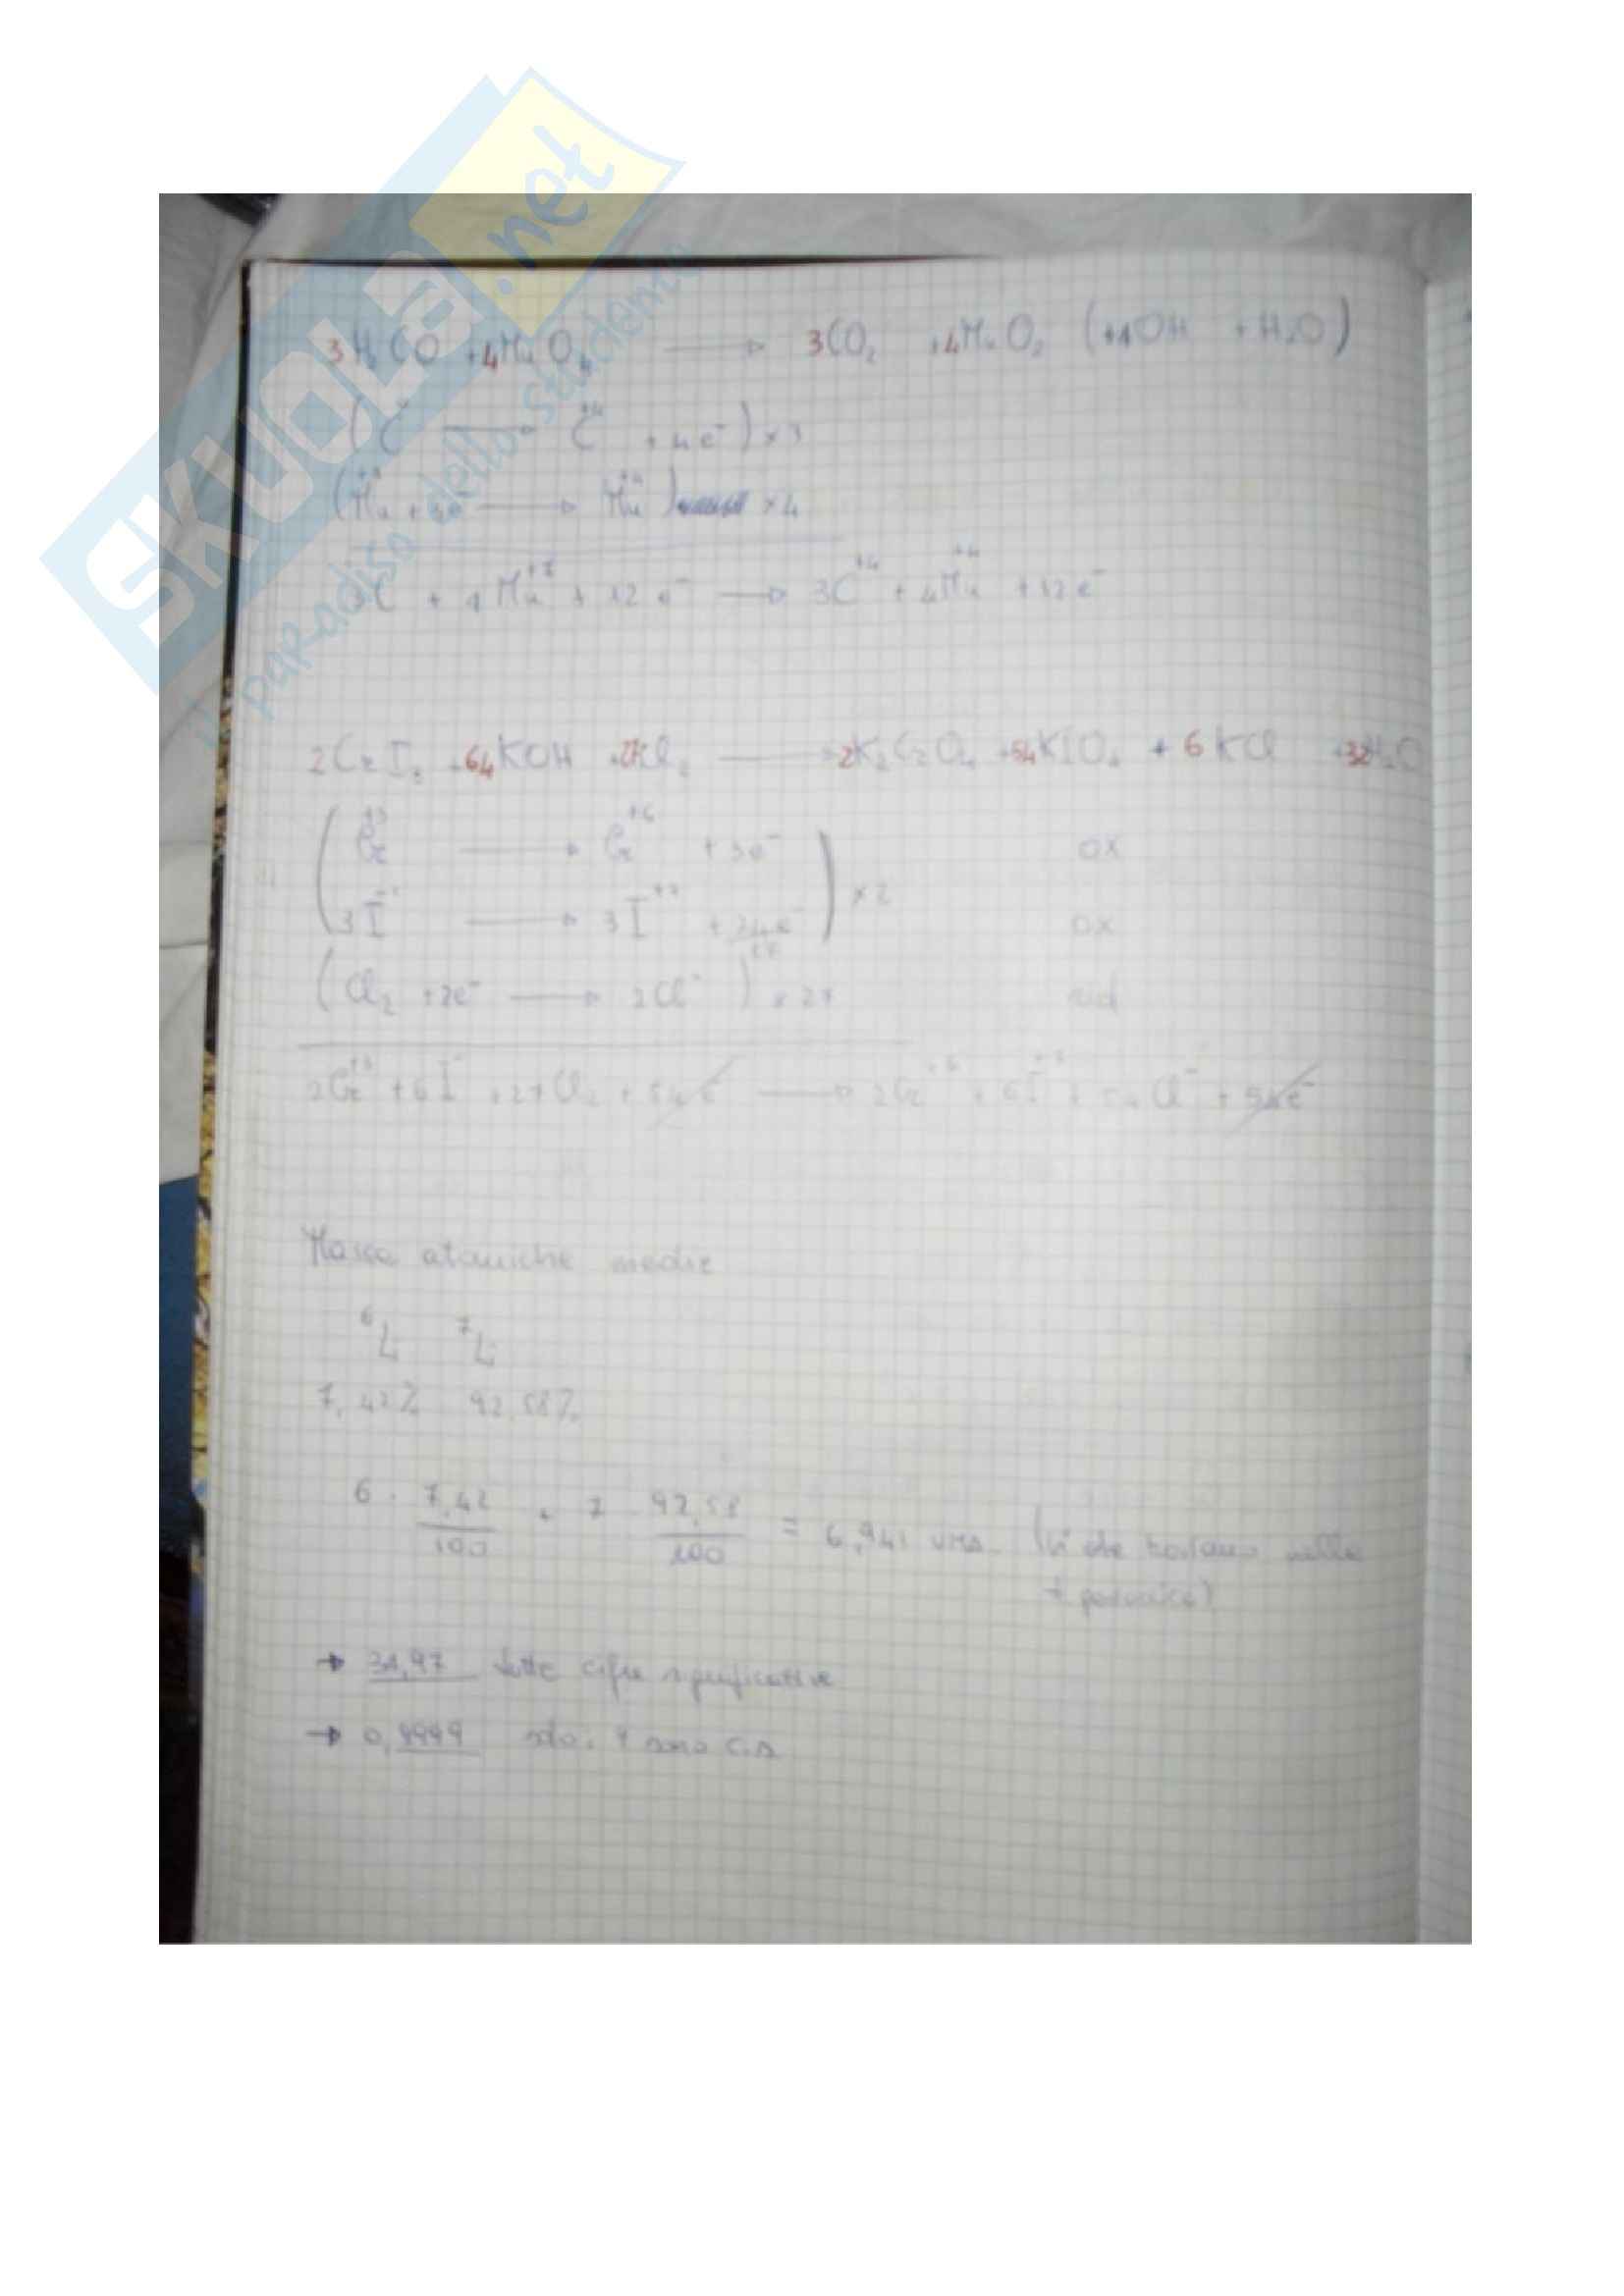 SKUOLA.net
il paradiso dello studente
3H₂CO +4MnO₄ → 3CO₂ +4MnO₂ (+4OH + H₂O)
(C → C⁺⁴ + 4e⁻) ×3
(Mn⁺⁷ + 3e⁻ → Mn⁺⁴) ×4
3C + 4Mn⁺⁷ + 12e⁻ → 3C⁺⁴ + 4Mn⁺⁴ + 12e⁻
2CrI₃ +64KOH +27Cl₂ → 2K₂CrO₄ +54KIO₄ + 6KCl +32H₂O
(Cr⁺³ → Cr⁺⁶ + 3e⁻ ox
3I⁻ → 3I⁺⁷ + 24e⁻) ×2 ox
27
(Cl₂ +2e⁻ → 2Cl⁻) ×27 rid
2Cr⁺³ + 6I⁻ + 27Cl₂ + 54e⁻ → 2Cr⁺⁶ + 6I⁺⁷ + 54Cl⁻ + 54e⁻
Masse atomiche medie
⁶Li ⁷Li
7,42% 92,58%
6 · 7,42/100 + 7 92,58/100 = 6,941 uma (nella
t periodica)
→ 31,97 tutte cifre significative
→ 0,9999 solo 4 sono c.s